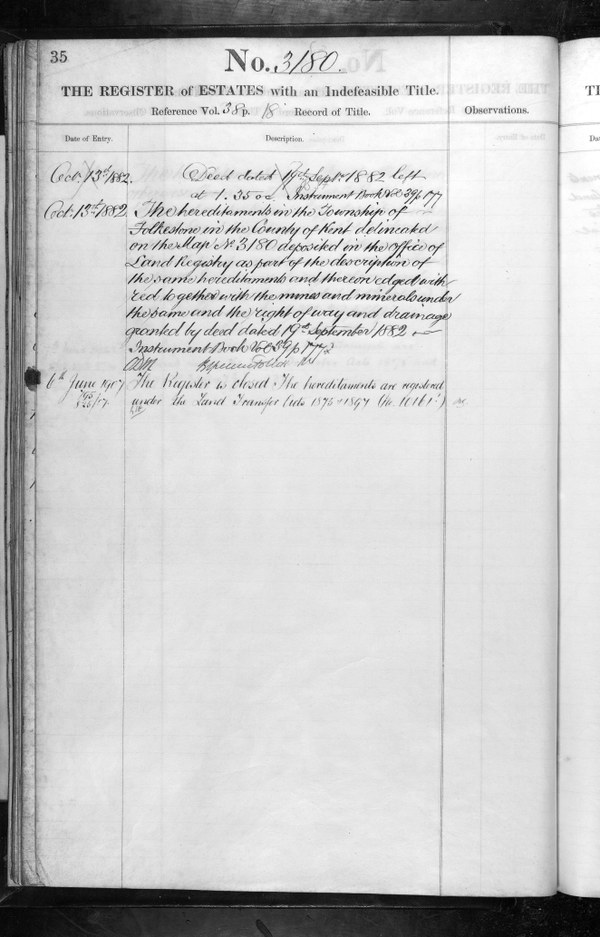 35
No. 3180.
THE REGISTER of ESTATES with an Indefeasible Title.
Reference Vol. 38 p. 18 Record of Title. Observations.
Date of Entry. Description.
Oct. 13th 1882. Deed dated 19th Septr. 1882 left
at 1.35 o.c. Instrument Book Vol 39 p 177
Oct. 13th 1882. The hereditaments in the Township of
Folkestone in the County of Kent delineated
on the Map No. 3180 deposited in the office of
Land Registry as part of the description of
the same hereditaments and thereon edged with
red together with the mines and minerals under
the same and the right of way and drainage
granted by deed dated 19th September 1882
Instrument Book Vol 39 p 177
6th June 1907 The Register is closed The hereditaments are registered
under the Land Transfer Acts 1875 & 1897 (No.